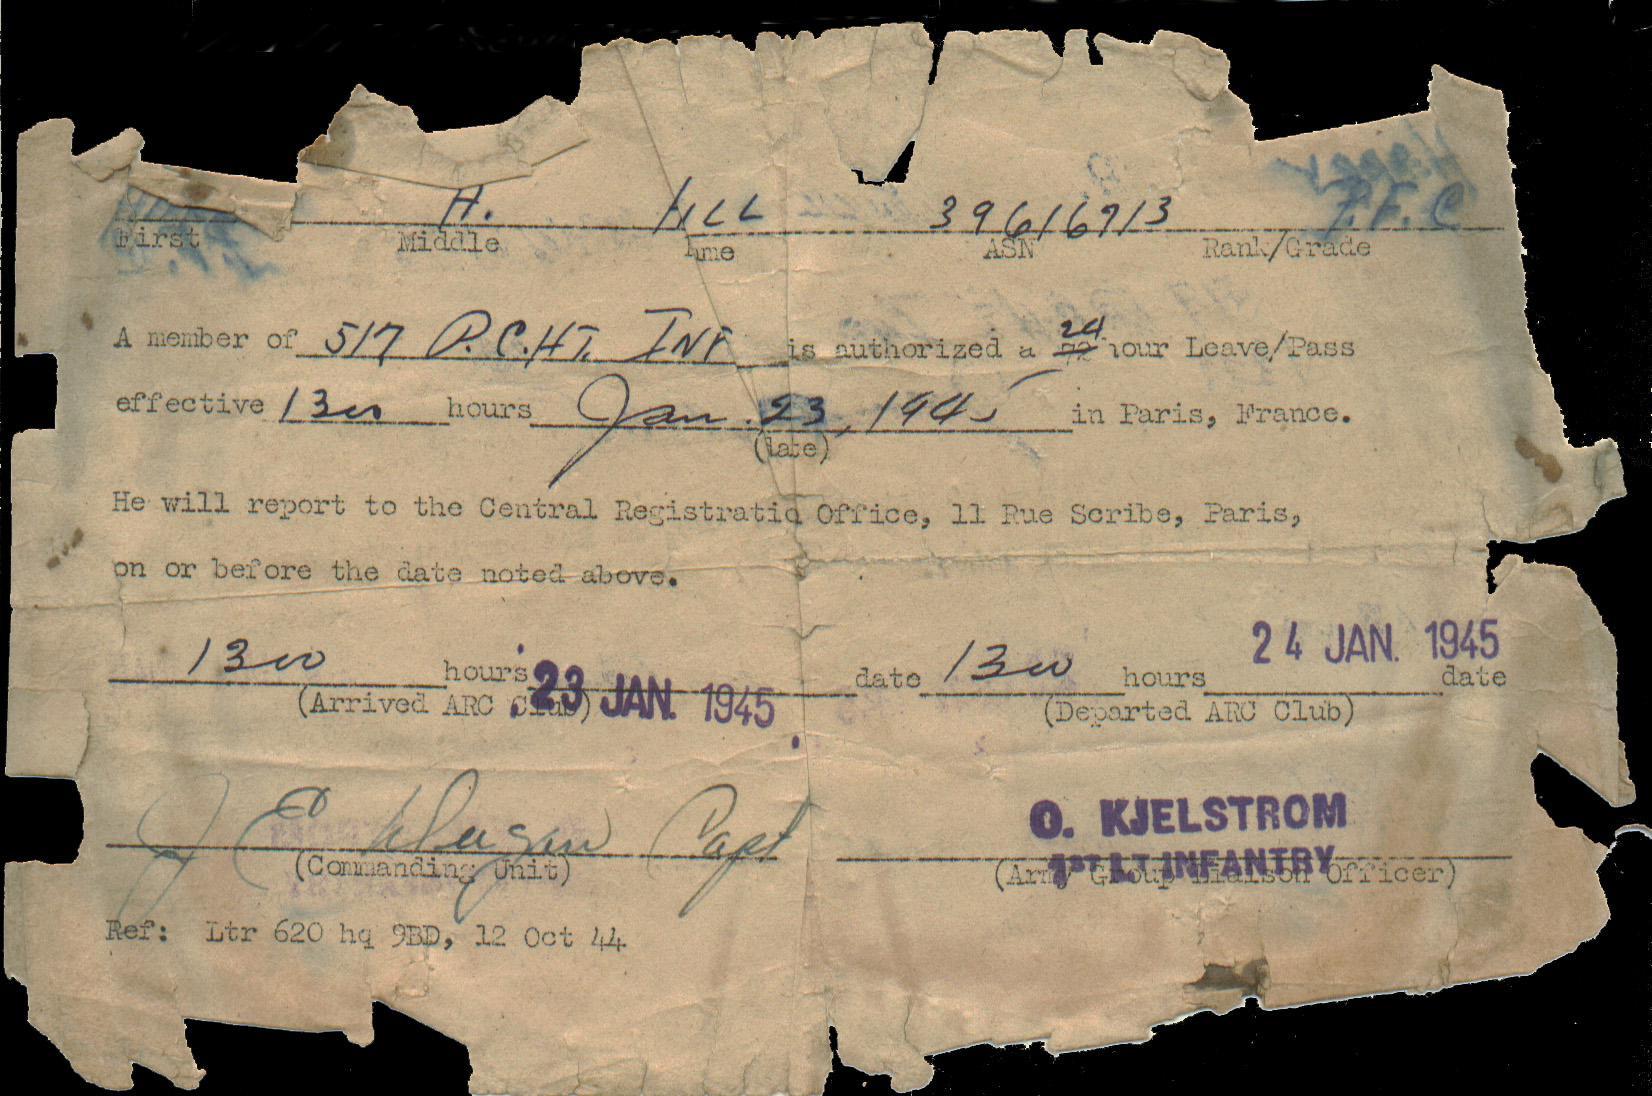 H. HILL 39616713 P.F.C
First Middle ame ASN Rank/Grade
A member of 517 P.C.HT. INF is authorized a 24 hour Leave/Pass
effective 1300 hours Jan. 23, 1945 in Paris, France.
(date)
He will report to the Central Registratio Office, 11 Rue Scribe, Paris,
on or before the date noted above.
1300 hours 23 JAN. 1945 date 1300 hours 24 JAN. 1945 date
(Arrived ARC Club) (Departed ARC Club)
J E Capt O. KJELSTROM
1ST LT. INFANTRY
(Commanding Unit) (Army Group Liaison Officer)
Ref: Ltr 620 hq 9BD, 12 Oct 44